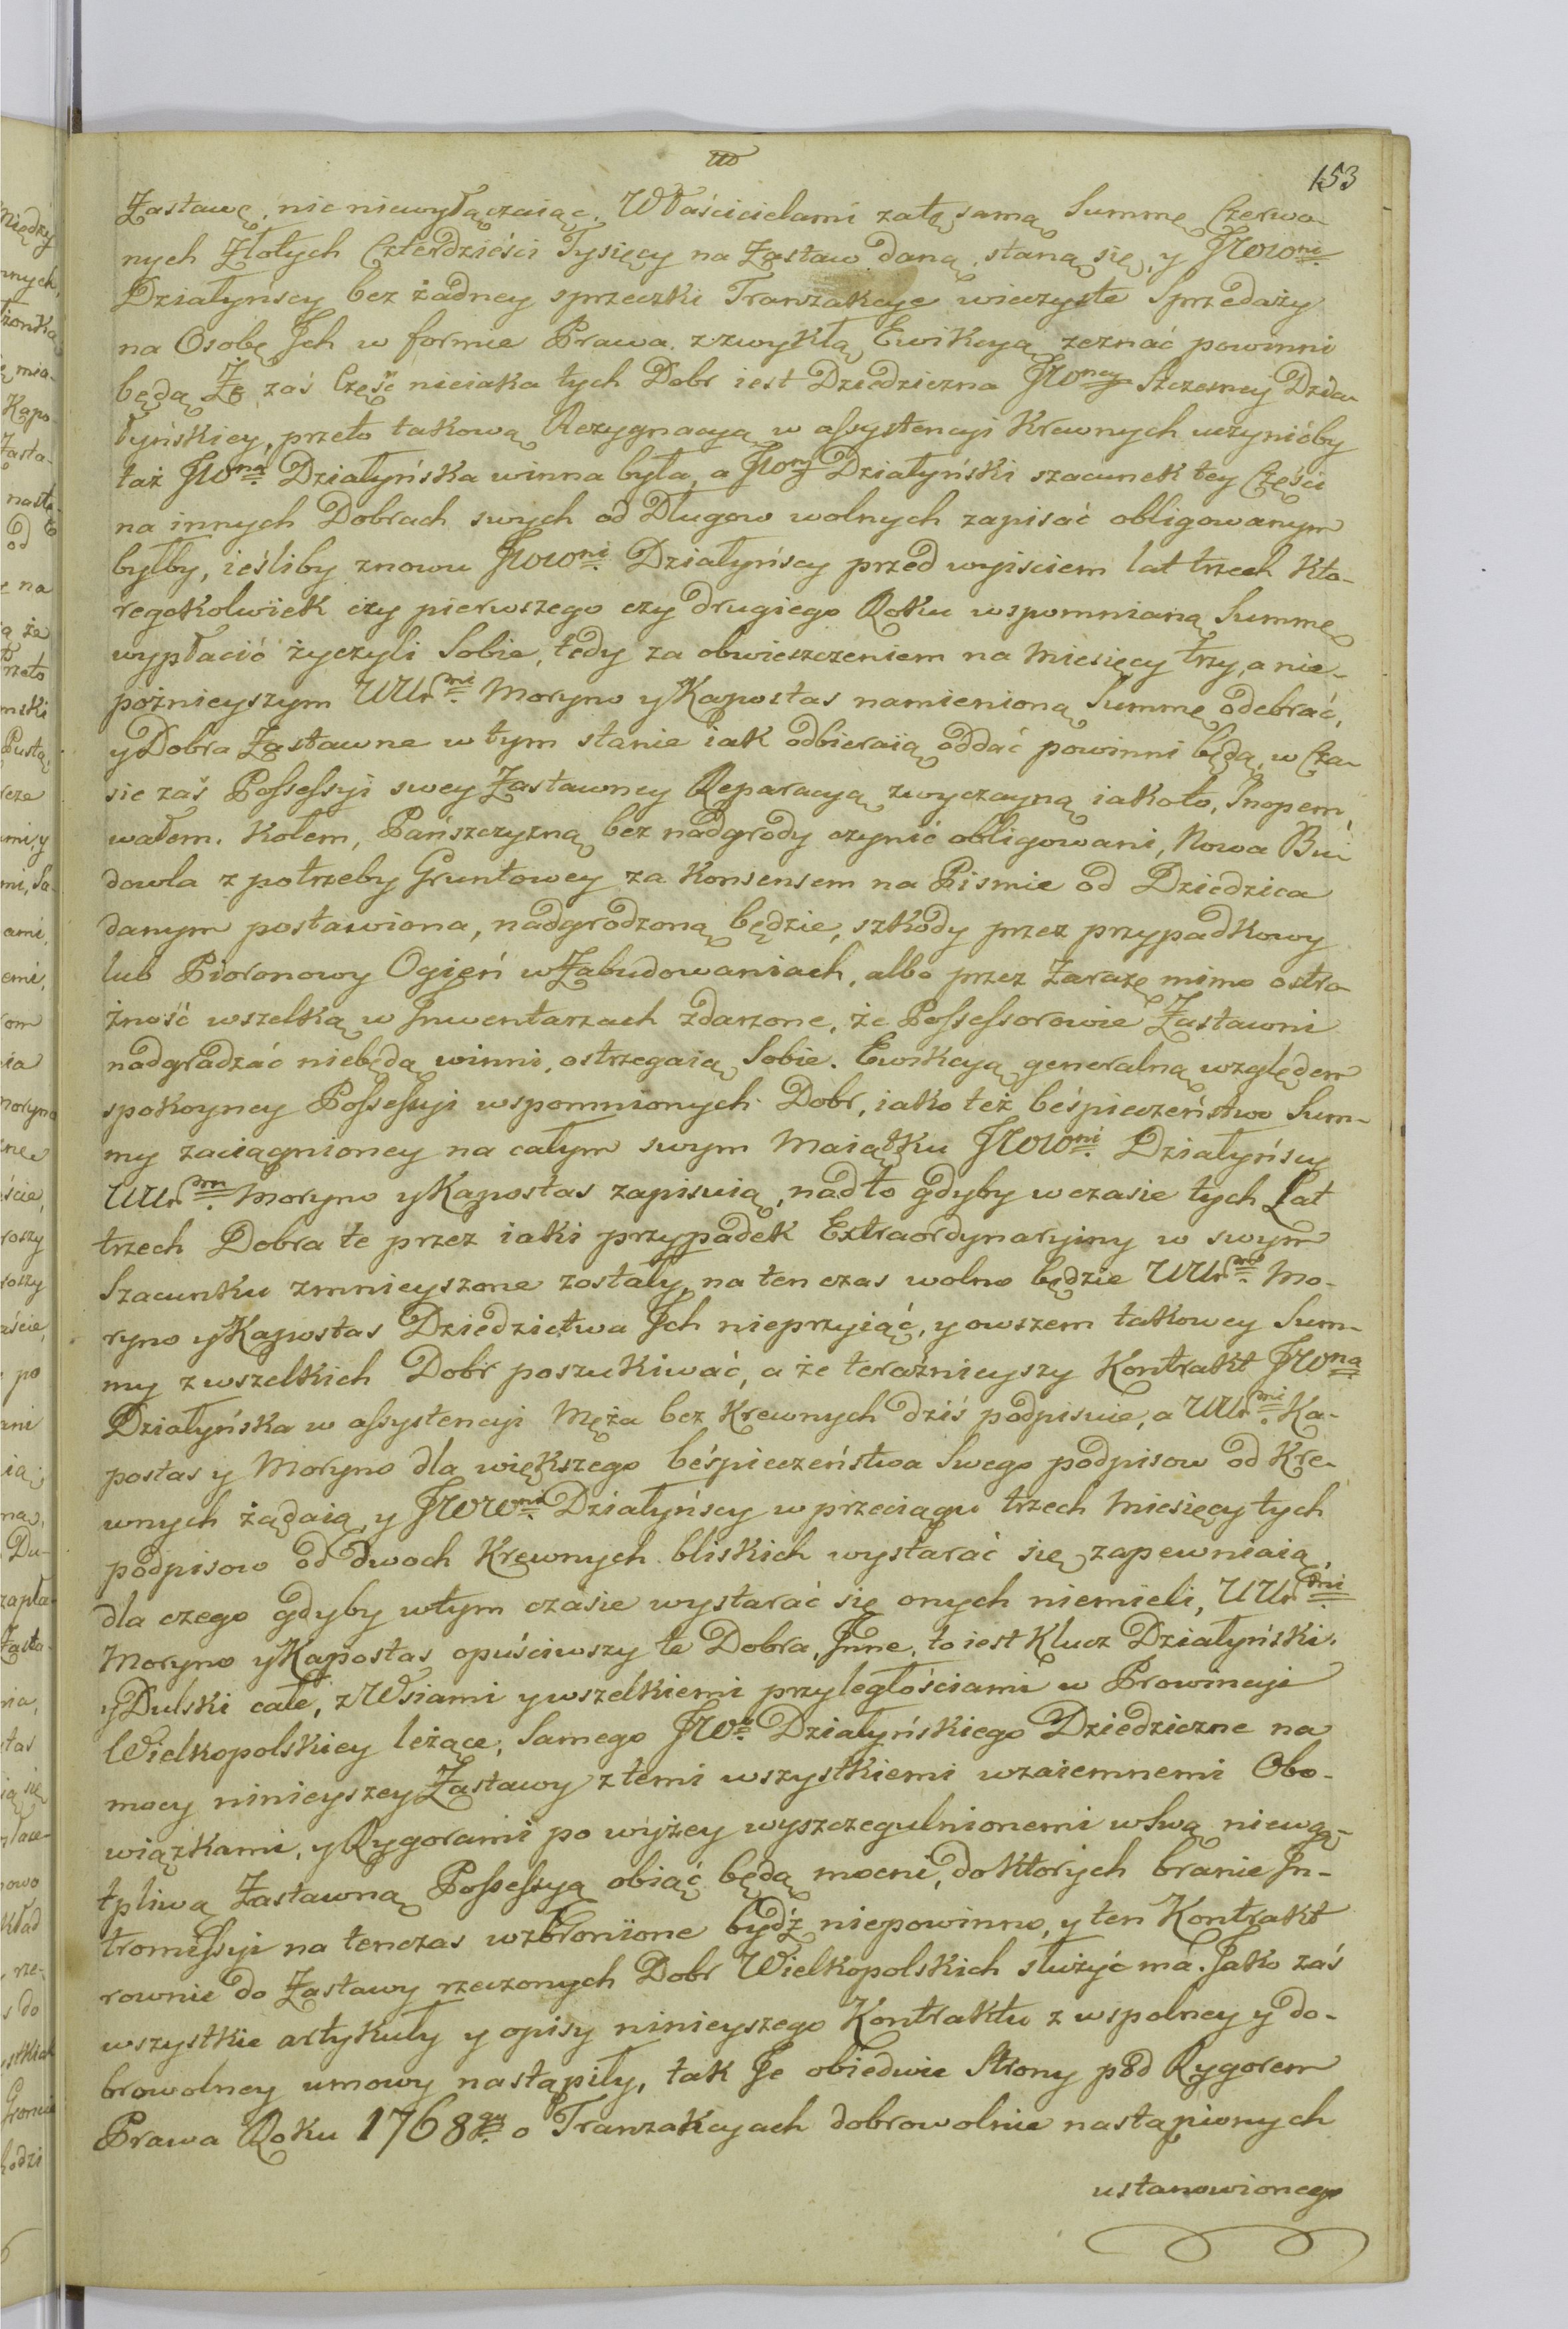 153
Zastawę, nic niewyłączaiąc. Właścicielami zatę samą Summę Czerwo-
nych Złotych Czterdzieści Tysięcy na Zastaw daną, staną się, y JWW<sup>ni</sup>
Działyńscy bez żadney sprzeczki Tranzakcye wieczyste Sprzedaży
na Osobę Ich w formie Prawa, z zwykłą Ewikcyą zeznać powinni
będą, Iż zaś Część nieiaka tych Dobr iest Dziedziczna JW<sup>ney</sup> Szczesney Dzia-
łyńskiey, przeto takową Rezygnacyą w assystencyi Krewnych uczynićby
taż JW<sup>na</sup> Działyńska winna była, a JW<sup>ny</sup> Działyński szacunek tey Części
na innych Dobrach swych od Długow wolnych zapisać obligowanym
byłby, ieśliby znowu JWW<sup>ni</sup> Działyńscy przed wyiściem lat trzech kto-
regokolwiek czy pierwszego czy drugiego Roku wspomnianą Summę
wypłacić życzyli Sobie, tedy za obwieszczeniem na Miesięcy trzy, a nie-
poźnieyszym UUr<sup>ni</sup> Moryno y Kapostas namienioną Summę odebrać,
y Dobra Zastawne w tym stanie iak odbieraią oddać powinni będą, w Cza-
sie zaś Possessyi swey Zastawney Reparacyą zwyczayną iakoto, Snopem,
wałem. Kołem, Pańszczyzną bez nadgrody czynić obligowani, Nowa Bu-
dowla z potrzeby Gruntowey za Konsensem na Pismie od Dziedzica
danym postawiona, nadgrodzoną będzie, szkody przez przypadkowy
lub Pioronowy Ogień w Zabudowaniach, albo przez Zarazę mimo ostro-
żność wszelką w Inwentarzach zdarzone, że Possessorowie Zastawni
nadgradzać niebędą winni, ostrzegaią Sobie. Ewikcyą generalną względem
spokoyney Possessyi wspomnionych Dobr, iako też beśpieczeństwo Sum-
my zaciągnioney na całym swym Maiątku JWW<sup>ni</sup> Działyńscy
UUr<sup>m</sup> Moryno y Kapostas zapisuią, nadto gdyby w czasie tych Lat
trzech Dobra te przez iaki przypadek Extraordynaryiny w swym
Szacunku zmnieyszone zostały, na ten czas wolno będzie UUr<sup>m</sup> Mo-
ryno y Kapostas Dziedzictwa Ich nieprzyiąć, y owszem takowey Sum-
my z wszelkich Dobr poszukiwać, a że teraźnieyszy Kontrakt JW<sup>na</sup>
Działyńska w assystencyi Męża bez Krewnych dziś podpisuie, a UUr<sup>ni</sup> Ka-
postas y Moryno dla większego beśpieczeństwa Swego podpisow od Kre-
wnych żądaią, y JWW<sup>ni</sup> Działyńscy w przeciągu trzech Miesięcy tych
podpisow od dwoch Krewnych bliskich wystarać się zapewniaią,
dla czego gdyby wtym czasie wystarać się onych niemieli, UUr<sup>ni</sup>
Moryno y Kapostas opuściwszy te Dobra, Inne, to iest Klucz Działyński.
y Dulski całe, z Wsiami y wszelkiemi przyległościami w Prowincyi
Wielkopolskiey leżące, Samego JW<sup>o</sup> Działyńskiego Dziedziczne na
mocy ninieyszey Zastawy z temi wszystkiemi wzaiemnemi Obo-
wiązkami, y Rygorami po wyżey wyszczegulnionemi wSwą niewą-
tpliwą Zastawną Possessyą obiąć będą mocni, doktorych branie In-
tromissyi na tenczas wzbronione bydź niepowinno, y ten Kontrakt
rownie do Zastawy rzeczonych Dobr Wielkopolskich służyć ma. Jako zaś
wszystkie artykuły y opisy ninieyszego Kontraktu z wspolney y do-
browolney umowy nastąpiły, tak Je obiedwie Strony pod Rygorem
Prawa Roku 1768<sup>go</sup> o Tranzakcyach dobrowolnie nastąpionych
ustanowionego